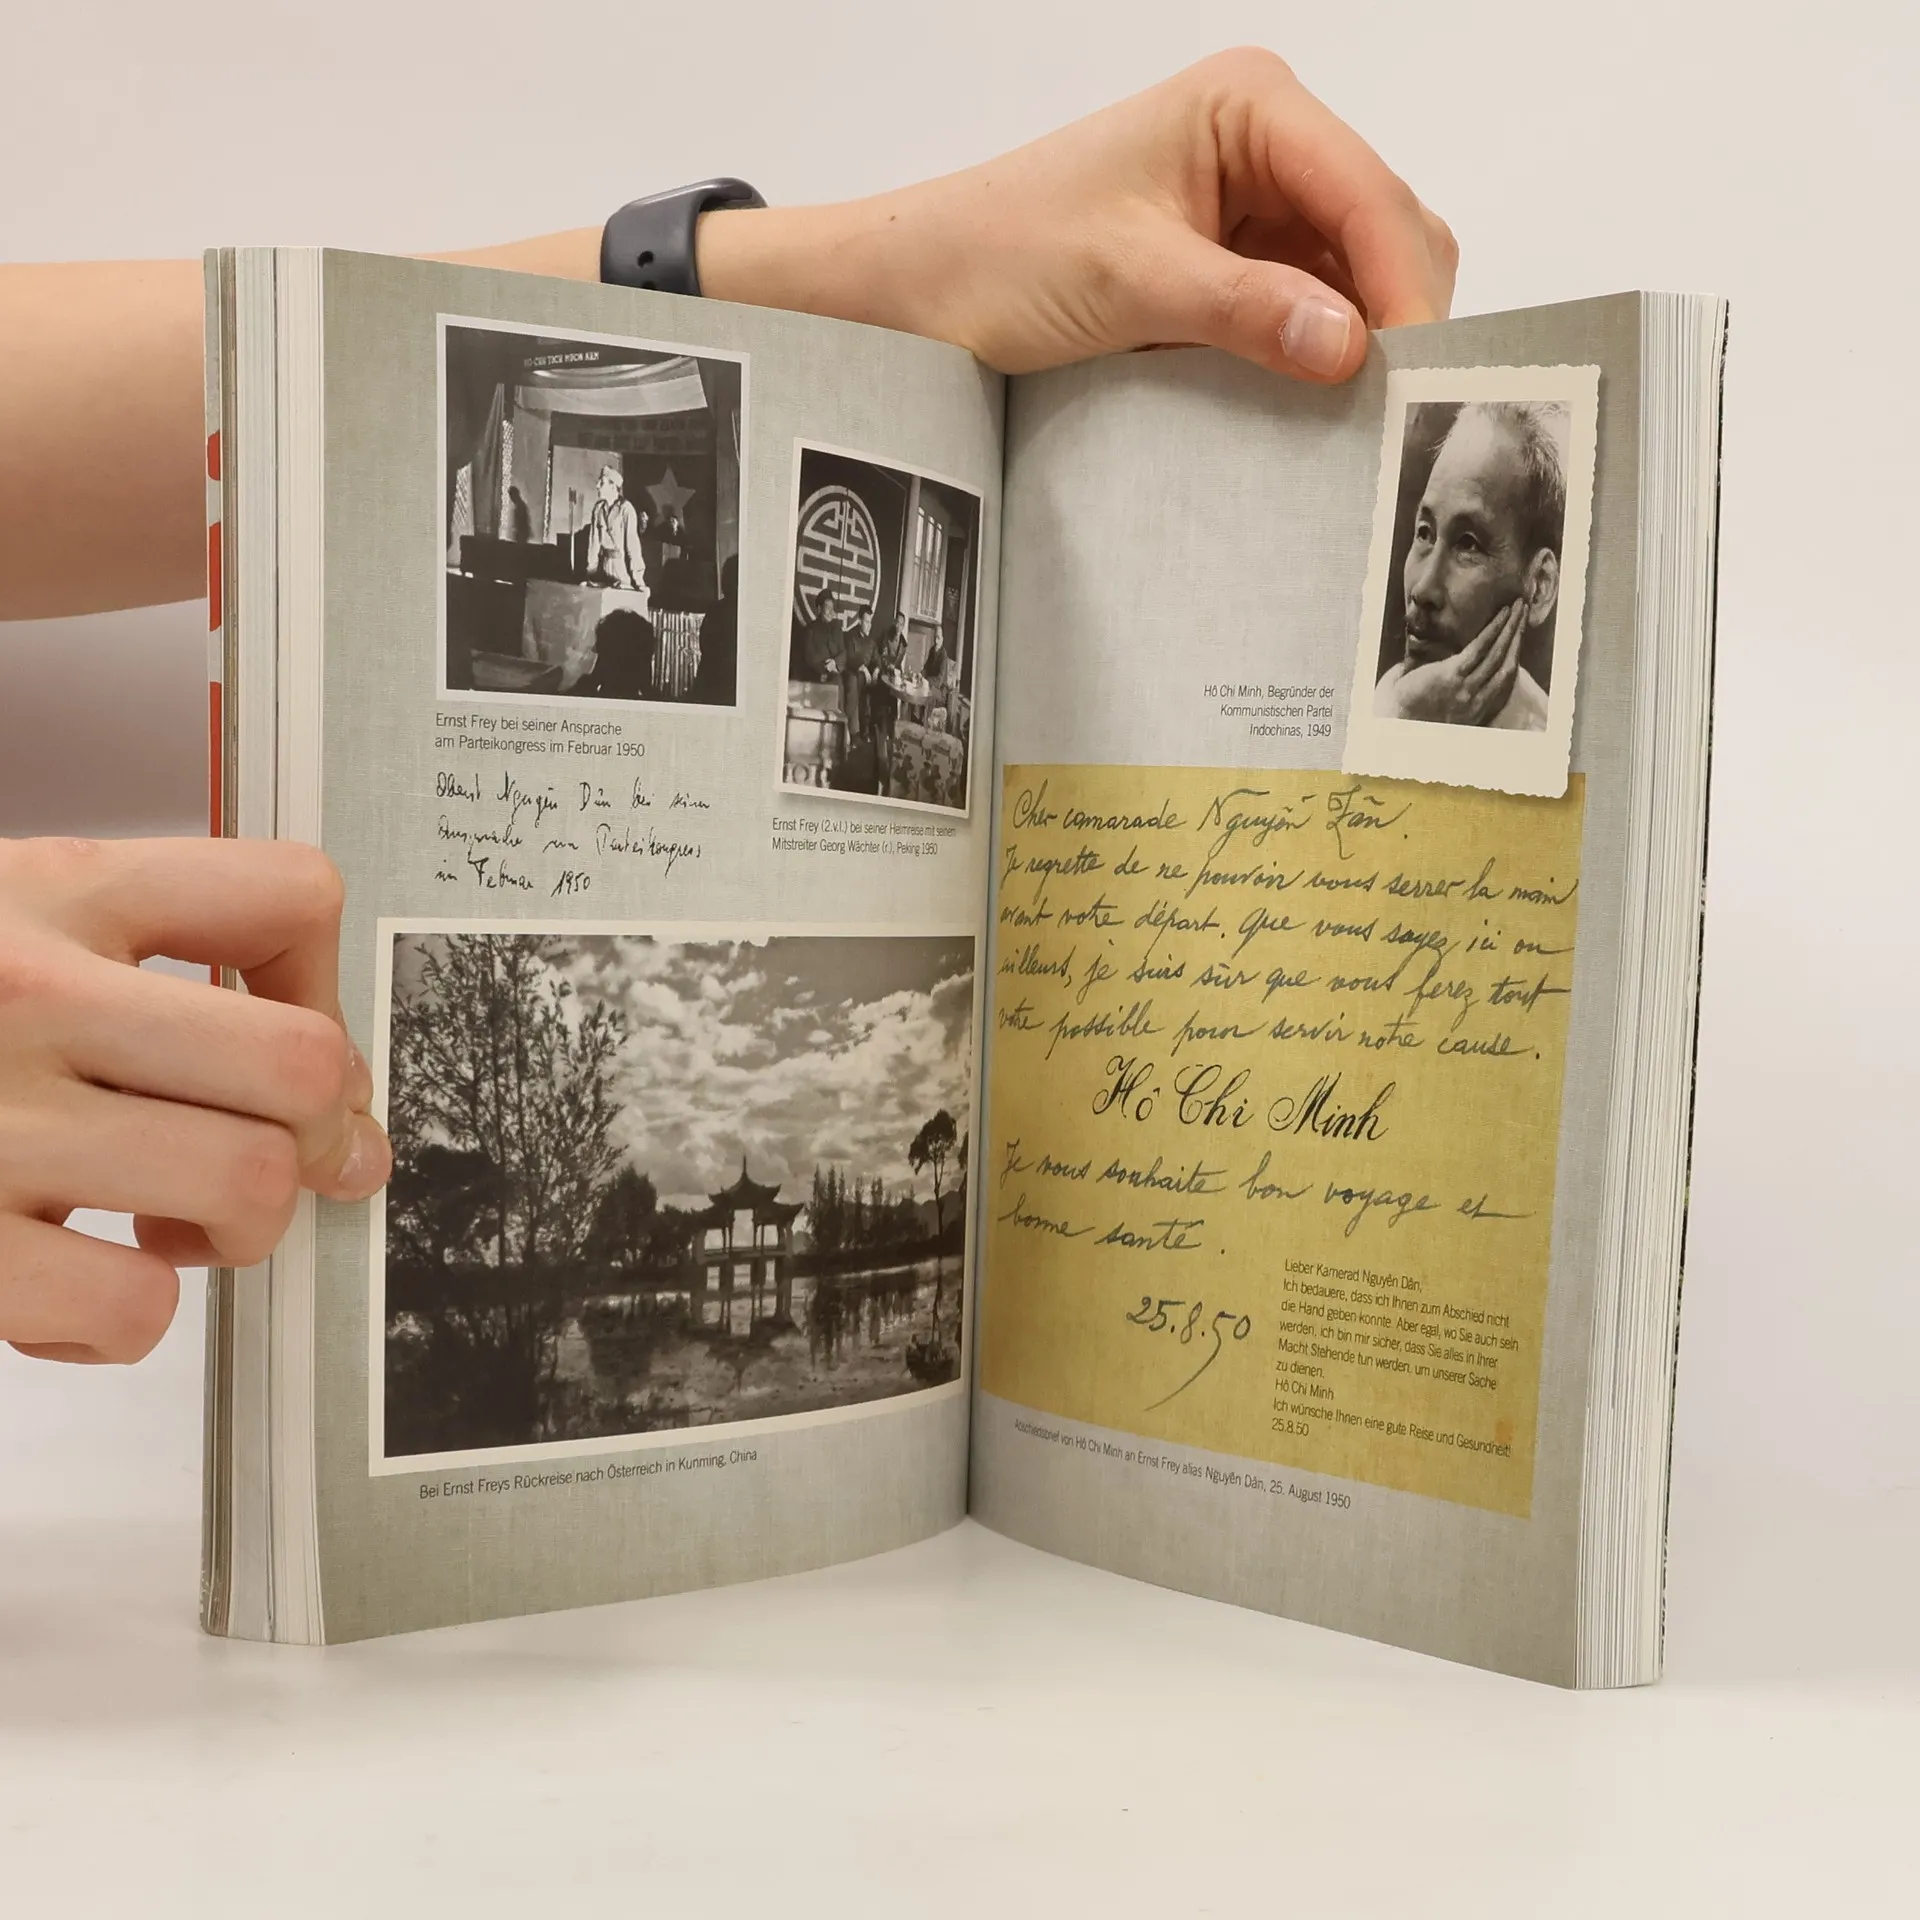 HO-CHU TICH MUON NAM
Ernst Frey bei seiner Ansprache
am Parteikongress im Februar 1950
Oberst Nguyen Dân bei seiner
Ansprache am Parteikongress
im Februar 1950
Ernst Frey (2.v.l.) bei seiner Heimreise mit seinem
Mitstreiter Georg Wächter (r.), Peking 1950
Bei Ernst Freys Rückreise nach Österreich in Kunming, China
Hô Chi Minh, Begründer der
Kommunistischen Partei
Indochinas, 1949
Cher camarade Nguyên Zân.
Je regrette de ne pouvoir vous serrer la main
avant votre départ. Que vous soyez ici ou
ailleurs, je suis sûr que vous ferez tout
votre possible pour servir notre cause.
Hô Chi Minh
Je vous souhaite bon voyage et
bonne santé.
25.8.50
Lieber Kamerad Nguyên Dân,
Ich bedauere, dass ich Ihnen zum Abschied nicht
die Hand geben konnte. Aber egal, wo Sie auch sein
werden, ich bin mir sicher, dass Sie alles in Ihrer
Macht Stehende tun werden, um unserer Sache
zu dienen.
Hô Chi Minh
Ich wünsche Ihnen eine gute Reise und Gesundheit!
25.8.50
Abschiedsbrief von Hô Chi Minh an Ernst Frey alias Nguyên Dân, 25. August 1950